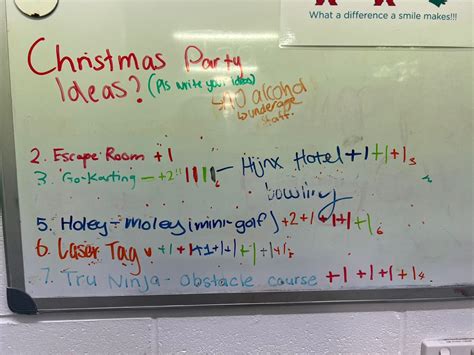 What a difference a smile makes!!!
Christmas Party
Ideas? (pls write your ideas)
↳ NO alcohol
↳ underage
staff.
2. Escape Room +1
3. Go-Karting - +2 |||| - Hijnx Hotel +1+1+1 3
bowling
5. Holey-moley (mini-golf) +2+1+1+1
6. Laser Tag +1+1+1+1+1+1+1
7. Tru Ninja - obstacle course +1 +1 +1 +1 4